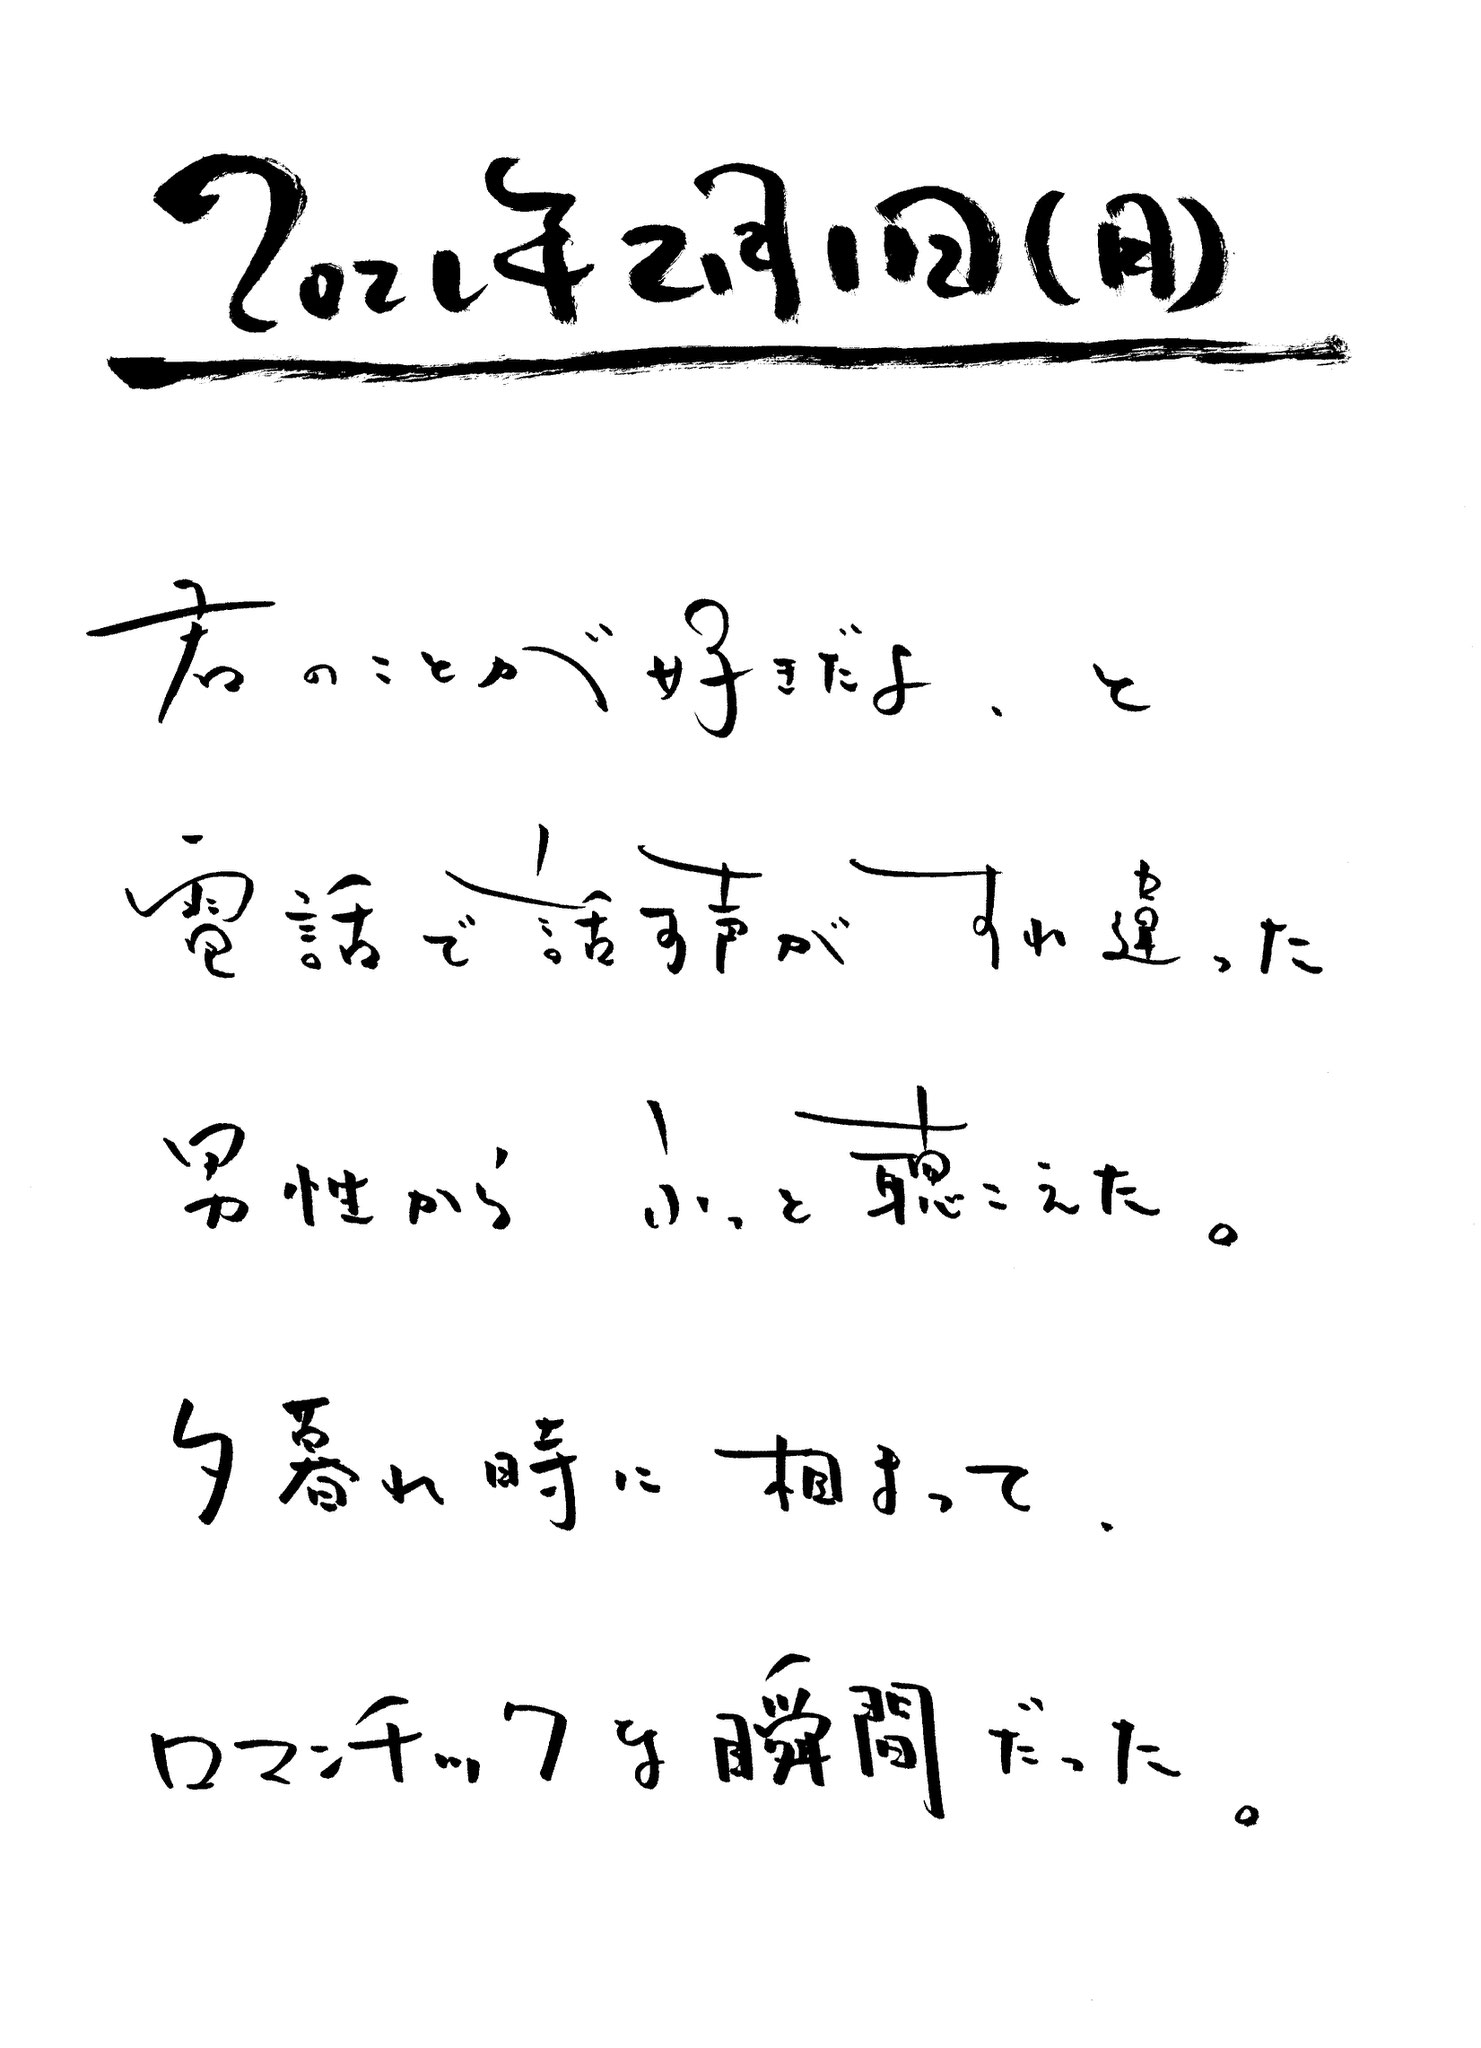 2021年2月1日(月)
君のことが好きだよ、と
電話で話す声が すれ違った
男性から ふっと聴こえた。
夕暮れ時に 相まって、
ロマンチックな瞬間だった。